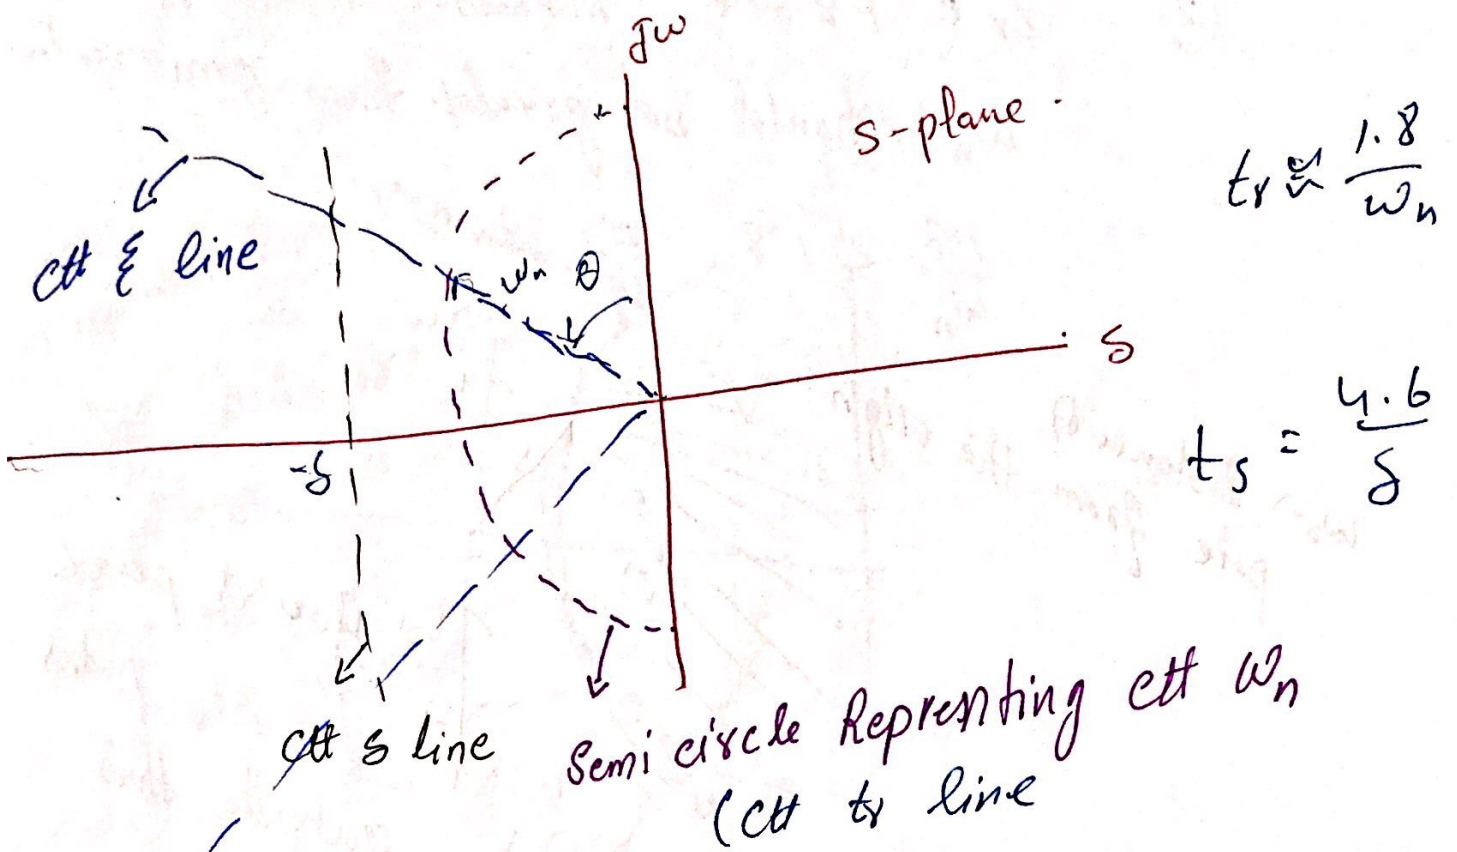 jω
s-plane.
tr ≈ 1.8/ωn
ctt ξ line
ωn θ
σ
ts = 4.6/σ
-σ
ctt σ line
Semi circle Represnting ctt ωn
(ctt tr line